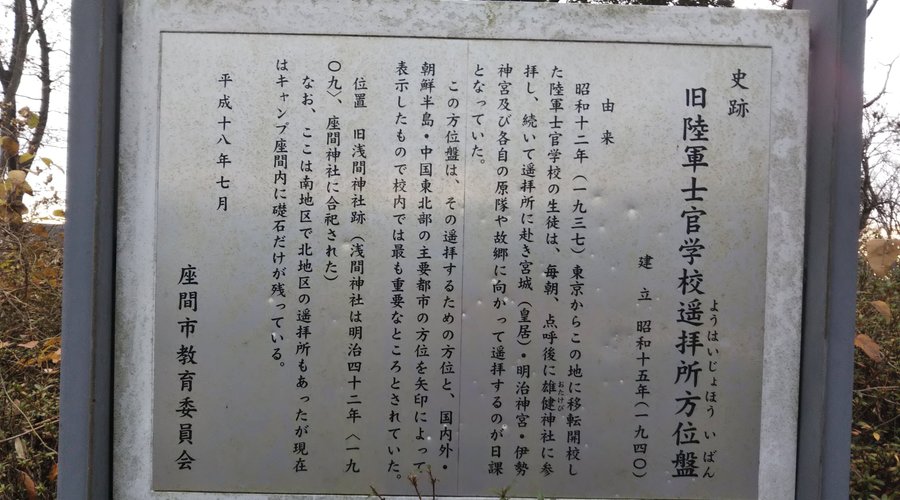 史跡
旧陸軍士官学校遥拝所方位盤
ようはいじょほういばん
建立 昭和十五年（一九四〇）
由来
昭和十二年（一九三七）東京からこの地に移転開校し
た陸軍士官学校の生徒は、毎朝、点呼後に雄健神社に参
おたけび
拝し、続いて遥拝所に赴き宮城（皇居）・明治神宮・伊勢
神宮及び各自の原隊や故郷に向かって遥拝するのが日課
となっていた。
この方位盤は、その遥拝するための方位と、国内外・
朝鮮半島・中国東北部の主要都市の方位を矢印によって
表示したもので校内では最も重要なところとされていた。
位置 旧浅間神社跡（浅間神社は明治四十二年〈一九
〇九〉、座間神社に合祀された）
なお、ここは南地区で北地区の遥拝所もあったが現在
はキャンプ座間内に礎石だけが残っている。
平成十八年七月
座間市教育委員会